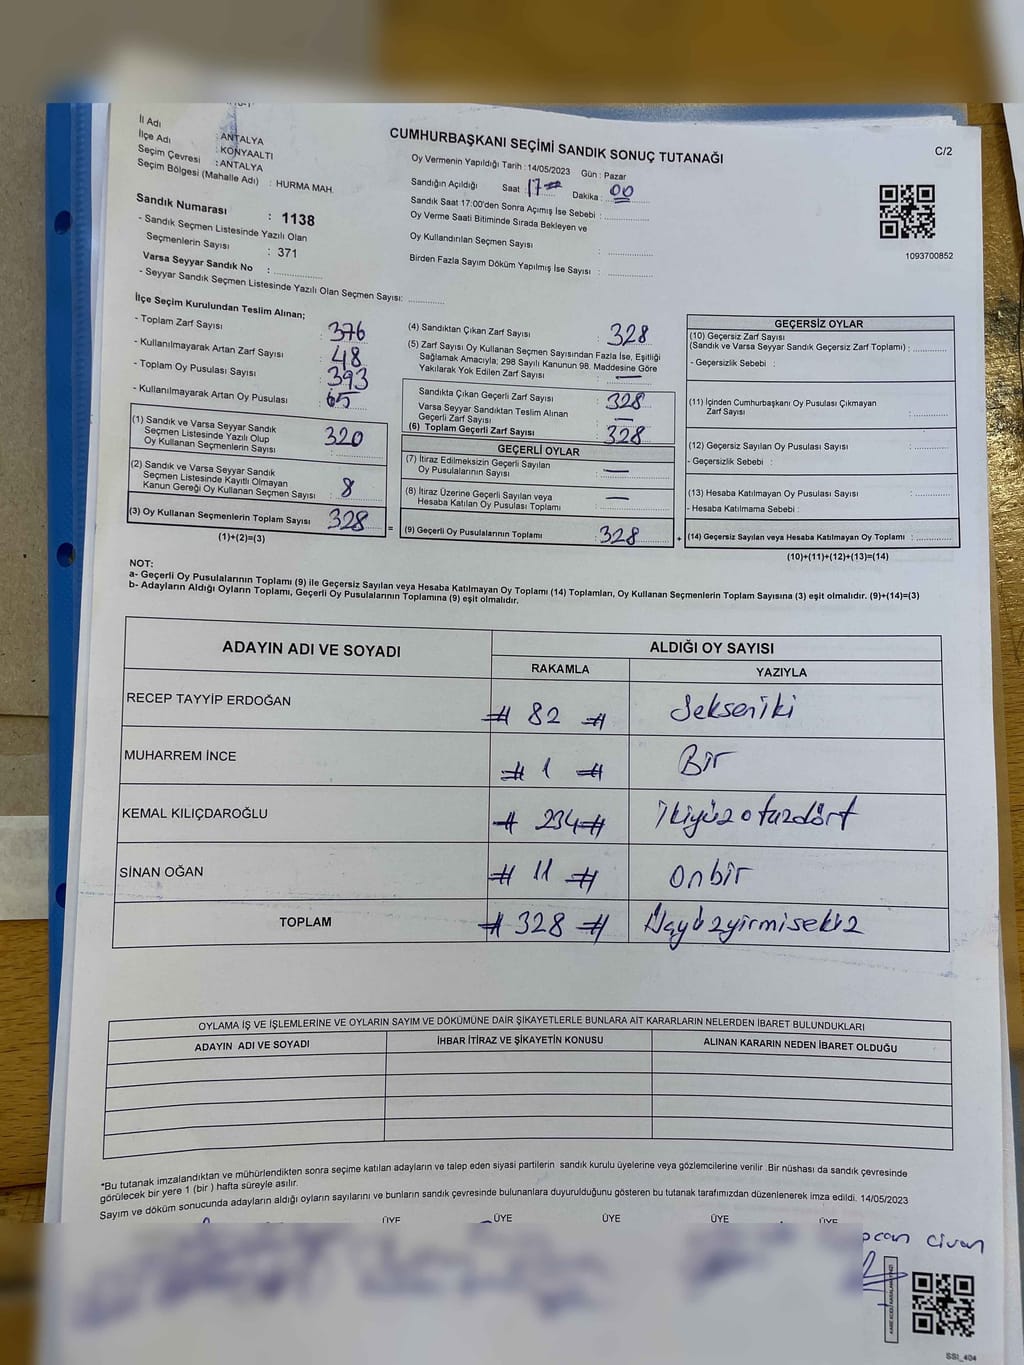 İl Adı : ANTALYA
İlçe Adı : KONYAALTI
Seçim Çevresi : ANTALYA
Seçim Bölgesi (Mahalle Adı) : HURMA MAH.
Sandık Numarası : 1138
- Sandık Seçmen Listesinde Yazılı Olan
Seçmenlerin Sayısı : 371
Varsa Seyyar Sandık No : ..............
- Seyyar Sandık Seçmen Listesinde Yazılı Olan Seçmen Sayısı: ..........
CUMHURBAŞKANI SEÇİMİ SANDIK SONUÇ TUTANAĞI
C/2
Oy Vermenin Yapıldığı Tarih : 14/05/2023 Gün : Pazar
Sandığın Açıldığı Saat 17 Dakika : 00
Sandık Saat 17:00'den Sonra Açımış İse Sebebi : ..............
Oy Verme Saati Bitiminde Sırada Bekleyen ve
Oy Kullandırılan Seçmen Sayısı : ..............
Birden Fazla Sayım Döküm Yapılmış İse Sayısı : ..............
1093700852
İlçe Seçim Kurulundan Teslim Alınan;
- Toplam Zarf Sayısı : 376
- Kullanılmayarak Artan Zarf Sayısı : 48
- Toplam Oy Pusulası Sayısı : 393
- Kullanılmayarak Artan Oy Pusulası : 65
(1) Sandık ve Varsa Seyyar Sandık
Seçmen Listesinde Yazılı Olup
Oy Kullanan Seçmenlerin Sayısı : 320
(2) Sandık ve Varsa Seyyar Sandık
Seçmen Listesinde Kayıtlı Olmayan
Kanun Gereği Oy Kullanan Seçmen Sayısı : 8
(3) Oy Kullanan Seçmenlerin Toplam Sayısı : 328
(1)+(2)=(3)
(4) Sandıktan Çıkan Zarf Sayısı : 328
(5) Zarf Sayısı Oy Kullanan Seçmen Sayısından Fazla İse, Eşitliği
Sağlamak Amacıyla; 298 Sayılı Kanunun 98. Maddesine Göre
Yakılarak Yok Edilen Zarf Sayısı : —
Sandıkta Çıkan Geçerli Zarf Sayısı : 328
Varsa Seyyar Sandıktan Teslim Alınan
Geçerli Zarf Sayısı : —
(6) Toplam Geçerli Zarf Sayısı : 328
GEÇERLİ OYLAR
(7) İtiraz Edilmeksizin Geçerli Sayılan
Oy Pusulalarının Sayısı : —
(8) İtiraz Üzerine Geçerli Sayılan veya
Hesaba Katılan Oy Pusulası Toplamı : —
= (9) Geçerli Oy Pusulalarının Toplamı : 328
GEÇERSİZ OYLAR
(10) Geçersiz Zarf Sayısı
(Sandık ve Varsa Seyyar Sandık Geçersiz Zarf Toplamı) : ..........
- Geçersizlik Sebebi :
(11) İçinden Cumhurbaşkanı Oy Pusulası Çıkmayan
Zarf Sayısı : ..........
(12) Geçersiz Sayılan Oy Pusulası Sayısı : ..........
- Geçersizlik Sebebi :
(13) Hesaba Katılmayan Oy Pusulası Sayısı : ..........
- Hesaba Katılmama Sebebi :
+ (14) Geçersiz Sayılan veya Hesaba Katılmayan Oy Toplamı : ..........
(10)+(11)+(12)+(13)=(14)
NOT:
a- Geçerli Oy Pusulalarının Toplamı (9) ile Geçersiz Sayılan veya Hesaba Katılmayan Oy Toplamı (14) Toplamları, Oy Kullanan Seçmenlerin Toplam Sayısına (3) eşit olmalıdır. (9)+(14)=(3)
b- Adayların Aldığı Oyların Toplamı, Geçerli Oy Pusulalarının Toplamına (9) eşit olmalıdır.
ADAYIN ADI VE SOYADI ALDIĞI OY SAYISI
RAKAMLA YAZIYLA
RECEP TAYYİP ERDOĞAN # 82 # Sekseniki
MUHARREM İNCE # 1 # Bir
KEMAL KILIÇDAROĞLU # 234 # ikiyüzotuzdört
SİNAN OĞAN # 11 # onbir
TOPLAM # 328 # üçyüzyirmisekiz
OYLAMA İŞ VE İŞLEMLERİNE VE OYLARIN SAYIM VE DÖKÜMÜNE DAİR ŞİKAYETLERLE BUNLARA AİT KARARLARIN NELERDEN İBARET BULUNDUKLARI
ADAYIN ADI VE SOYADI İHBAR İTİRAZ VE ŞİKAYETİN KONUSU ALINAN KARARIN NEDEN İBARET OLDUĞU
*Bu tutanak imzalandıktan ve mühürlendikten sonra seçime katılan adayların ve talep eden siyasi partilerin sandık kurulu üyelerine veya gözlemcilerine verilir .Bir nüshası da sandık çevresinde
görülecek bir yere 1 (bir ) hafta süreyle asılır.
Sayım ve döküm sonucunda adayların aldığı oyların sayılarını ve bunların sandık çevresinde bulunanlara duyurulduğunu gösteren bu tutanak tarafımızdan düzenlenerek imza edildi. 14/05/2023
ÜYE ÜYE ÜYE ÜYE ÜYE
civan
SSI_404